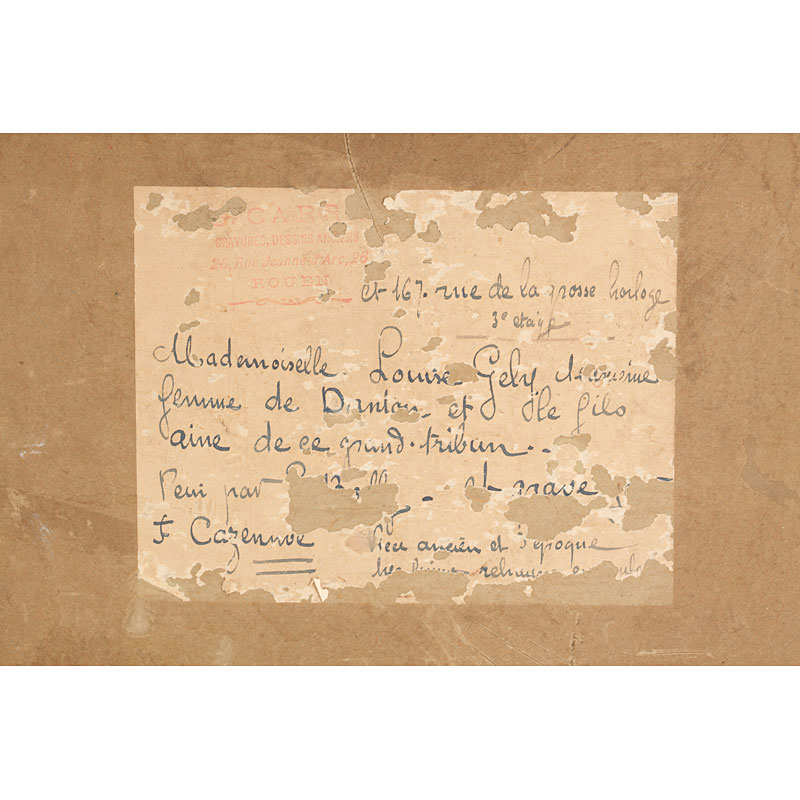 CARR
GRAVURES, DESSINS ANCIENS
26, Rue Jeanne d'Arc, 26
ROUEN
et 167. rue de la grosse horloge
3e etage
Mademoiselle Louise Gely
femme de Danton et le fils
aine de ce grand tribun.
Peint par et gravé
F Cazenave
Pièce ancien et époque